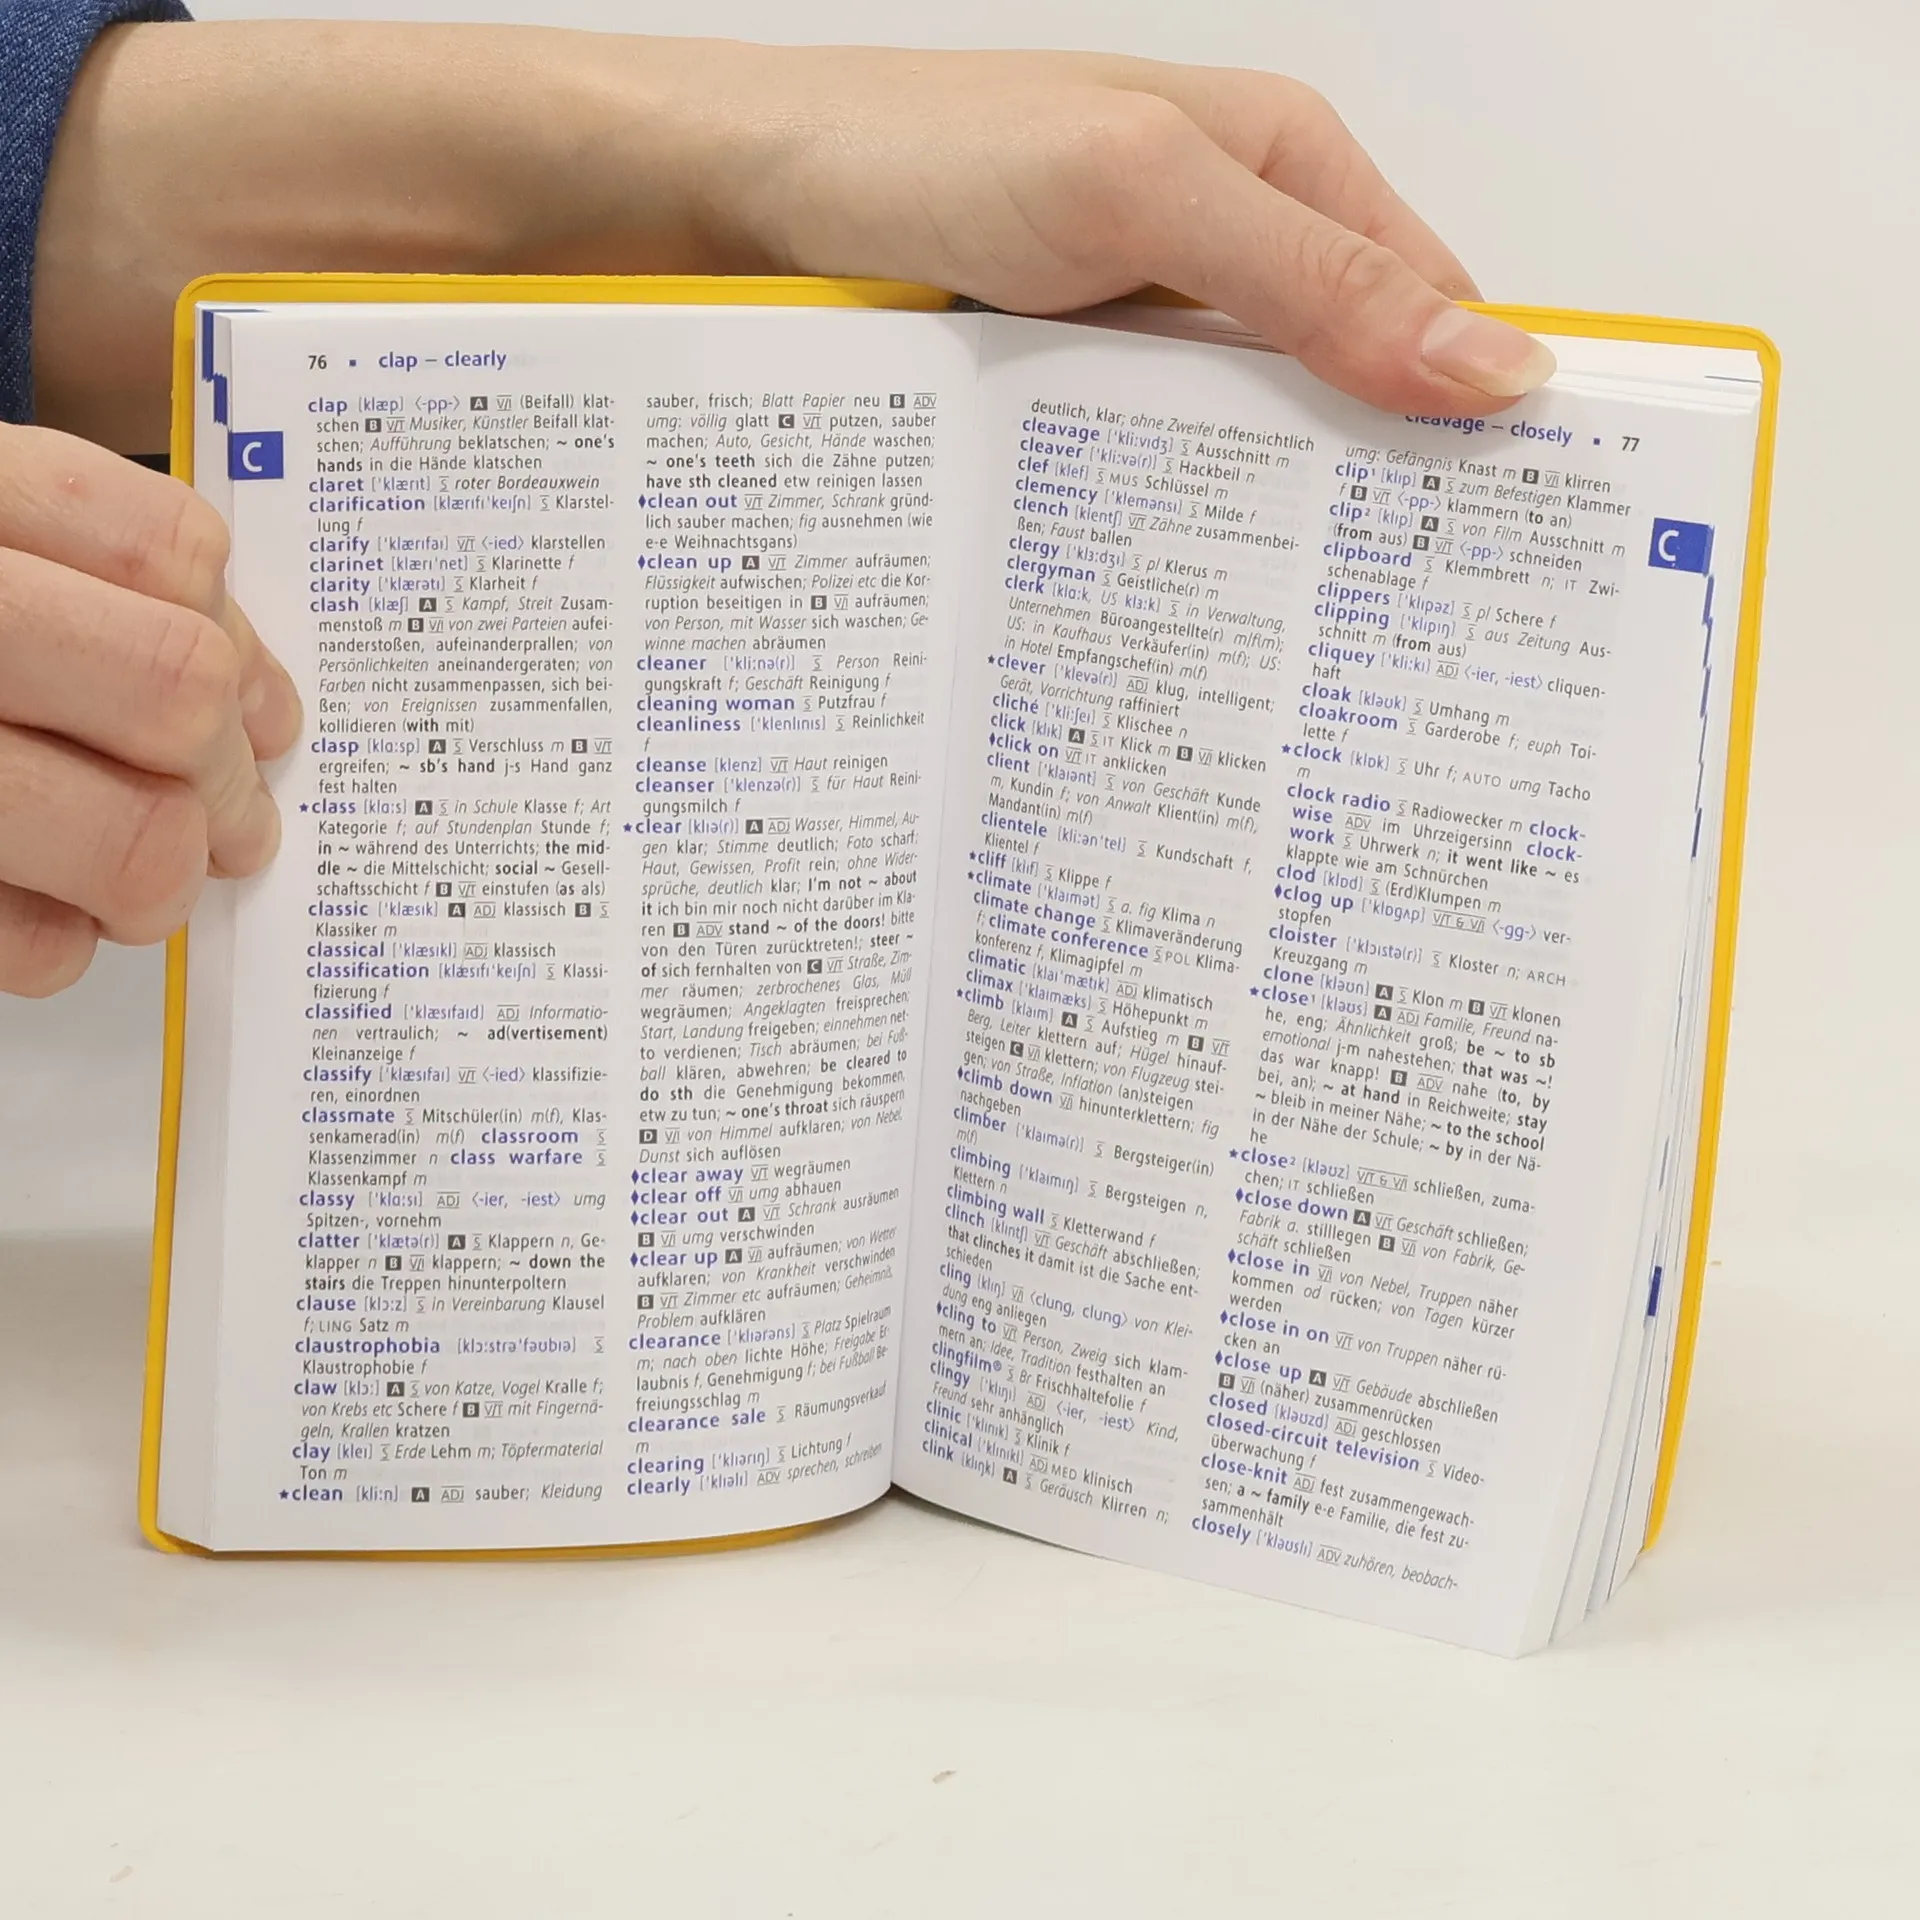 76 ▪ clap – clearly
C
clap [klæp] ⟨-pp-⟩ A V/I (Beifall) klat-
schen B V/T Musiker, Künstler Beifall klat-
schen; Aufführung beklatschen; ~ one's
hands in die Hände klatschen
claret ['klærɪt] S roter Bordeauxwein
clarification [klærɪfɪ'keɪʃn] S Klarstel-
lung f
clarify ['klærɪfaɪ] V/T ⟨-ied⟩ klarstellen
clarinet [klærɪ'net] S Klarinette f
clarity ['klærətɪ] S Klarheit f
clash [klæʃ] A S Kampf, Streit Zusam-
menstoß m B V/I von zwei Parteien aufei-
nanderstoßen, aufeinanderprallen; von
Persönlichkeiten aneinandergeraten; von
Farben nicht zusammenpassen, sich bei-
ßen; von Ereignissen zusammenfallen,
kollidieren (with mit)
clasp [klɑːsp] A S Verschluss m B V/T
ergreifen; ~ sb's hand j-s Hand ganz
fest halten
★class [klɑːs] A S in Schule Klasse f; Art
Kategorie f; auf Stundenplan Stunde f;
in ~ während des Unterrichts; the mid-
dle ~ die Mittelschicht; social ~ Gesell-
schaftsschicht f B V/T einstufen (as als)
classic ['klæsɪk] A ADJ klassisch B S
Klassiker m
classical ['klæsɪkl] ADJ klassisch
classification [klæsɪfɪ'keɪʃn] S Klassi-
fizierung f
classified ['klæsɪfaɪd] ADJ Informatio-
nen vertraulich; ~ ad(vertisement)
Kleinanzeige f
classify ['klæsɪfaɪ] V/T ⟨-ied⟩ klassifizie-
ren, einordnen
classmate S Mitschüler(in) m(f), Klas-
senkamerad(in) m(f) classroom S
Klassenzimmer n class warfare S
Klassenkampf m
classy ['klɑːsɪ] ADJ ⟨-ier, -iest⟩ umg
Spitzen-, vornehm
clatter ['klætə(r)] A S Klappern n, Ge-
klapper n B V/I klappern; ~ down the
stairs die Treppen hinunterpoltern
clause [klɔːz] S in Vereinbarung Klausel
f; LING Satz m
claustrophobia [klɔːstrə'fəʊbɪə] S
Klaustrophobie f
claw [klɔː] A S von Katze, Vogel Kralle f;
von Krebs etc Schere f B V/T mit Fingernä-
geln, Krallen kratzen
clay [kleɪ] S Erde Lehm m; Töpfermaterial
Ton m
★clean [kliːn] A ADJ sauber; Kleidung
sauber, frisch; Blatt Papier neu B ADV
umg: völlig glatt C V/T putzen, sauber
machen; Auto, Gesicht, Hände waschen;
~ one's teeth sich die Zähne putzen;
have sth cleaned etw reinigen lassen
♦clean out V/T Zimmer, Schrank gründ-
lich sauber machen; fig ausnehmen (wie
e-e Weihnachtsgans)
♦clean up A V/T Zimmer aufräumen;
Flüssigkeit aufwischen; Polizei etc die Kor-
ruption beseitigen in B V/I aufräumen;
von Person, mit Wasser sich waschen; Ge-
winne machen abräumen
cleaner ['kliːnə(r)] S Person Reini-
gungskraft f; Geschäft Reinigung f
cleaning woman S Putzfrau f
cleanliness ['klenlɪnɪs] S Reinlichkeit
f
cleanse [klenz] V/T Haut reinigen
cleanser ['klenzə(r)] S für Haut Reini-
gungsmilch f
★clear [klɪə(r)] A ADJ Wasser, Himmel, Au-
gen klar; Stimme deutlich; Foto scharf;
Haut, Gewissen, Profit rein; ohne Wider-
sprüche, deutlich klar; I'm not ~ about
it ich bin mir noch nicht darüber im Kla-
ren B ADV stand ~ of the doors! bitte
von den Türen zurücktreten!; steer ~
of sich fernhalten von C V/T Straße, Zim-
mer räumen; zerbrochenes Glas, Müll
wegräumen; Angeklagten freisprechen;
Start, Landung freigeben; einnehmen net-
to verdienen; Tisch abräumen; bei Fuß-
ball klären, abwehren; be cleared to
do sth die Genehmigung bekommen,
etw zu tun; ~ one's throat sich räuspern
D V/I von Himmel aufklaren; von Nebel,
Dunst sich auflösen
♦clear away V/T wegräumen
♦clear off V/I umg abhauen
♦clear out A V/T Schrank ausräumen
B V/I umg verschwinden
♦clear up A V/I aufräumen; von Wetter
aufklaren; von Krankheit verschwinden
B V/T Zimmer etc aufräumen; Geheimnis,
Problem aufklären
clearance ['klɪərəns] S Platz Spielraum
m; nach oben lichte Höhe; Freigabe Er-
laubnis f, Genehmigung f; bei Fußball Be-
freiungsschlag m
clearance sale S Räumungsverkauf
m
clearing ['klɪərɪŋ] S Lichtung f
clearly ['klɪəlɪ] ADV sprechen, schreiben
cleavage – closely ▪ 77
C
deutlich, klar; ohne Zweifel offensichtlich
cleavage ['kliːvɪdʒ] S Ausschnitt m
cleaver ['kliːvə(r)] S Hackbeil n
clef [klef] S MUS Schlüssel m
clemency ['klemənsɪ] S Milde f
clench [klentʃ] V/T Zähne zusammenbei-
ßen; Faust ballen
clergy ['klɜːdʒɪ] S pl Klerus m
clergyman S Geistliche(r) m
clerk [klɑːk, US klɜːk] S in Verwaltung,
Unternehmen Büroangestellte(r) m/f(m);
US: in Kaufhaus Verkäufer(in) m(f); US:
in Hotel Empfangschef(in) m(f)
★clever ['klevə(r)] ADJ klug, intelligent;
Gerät, Vorrichtung raffiniert
cliché ['kliːʃeɪ] S Klischee n
click [klɪk] A S IT Klick m B V/I klicken
♦click on V/T IT anklicken
client ['klaɪənt] S von Geschäft Kunde
m, Kundin f; von Anwalt Klient(in) m(f),
Mandant(in) m(f)
clientele [kliːən'tel] S Kundschaft f,
Klientel f
★cliff [klɪf] S Klippe f
★climate ['klaɪmət] S a. fig Klima n
climate change S Klimaveränderung
f; climate conference S POL Klima-
konferenz f, Klimagipfel m
climatic [klaɪ'mætɪk] ADJ klimatisch
climax ['klaɪmæks] S Höhepunkt m
★climb [klaɪm] A S Aufstieg m B V/T
Berg, Leiter klettern auf; Hügel hinauf-
steigen C V/I klettern; von Flugzeug stei-
gen; von Straße, Inflation (an)steigen
♦climb down V/I hinunterklettern; fig
nachgeben
climber ['klaɪmə(r)] S Bergsteiger(in)
m(f)
climbing ['klaɪmɪŋ] S Bergsteigen n,
Klettern n
climbing wall S Kletterwand f
clinch [klɪntʃ] V/T Geschäft abschließen;
that clinches it damit ist die Sache ent-
schieden
cling [klɪŋ] V/I ⟨clung, clung⟩ von Klei-
dung eng anliegen
♦cling to V/T Person, Zweig sich klam-
mern an; Idee, Tradition festhalten an
clingfilm® S Br Frischhaltefolie f
clingy ['klɪŋɪ] ADJ ⟨-ier, -iest⟩ Kind,
Freund sehr anhänglich
clinic ['klɪnɪk] S Klinik f
clinical ['klɪnɪkl] ADJ MED klinisch
clink [klɪŋk] A S Geräusch Klirren n;
umg: Gefängnis Knast m B V/I klirren
clip¹ [klɪp] A S zum Befestigen Klammer
f B V/T ⟨-pp-⟩ klammern (to an)
clip² [klɪp] A S von Film Ausschnitt m
(from aus) B V/T ⟨-pp-⟩ schneiden
clipboard S Klemmbrett n; IT Zwi-
schenablage f
clippers ['klɪpəz] S pl Schere f
clipping ['klɪpɪŋ] S aus Zeitung Aus-
schnitt m (from aus)
cliquey ['kliːkɪ] ADJ ⟨-ier, -iest⟩ cliquen-
haft
cloak [kləʊk] S Umhang m
cloakroom S Garderobe f; euph Toi-
lette f
★clock [klɒk] S Uhr f; AUTO umg Tacho
m
clock radio S Radiowecker m clock-
wise ADV im Uhrzeigersinn clock-
work S Uhrwerk n; it went like ~ es
klappte wie am Schnürchen
clod [klɒd] S (Erd)Klumpen m
♦clog up ['klɒgʌp] V/T & V/I ⟨-gg-⟩ ver-
stopfen
cloister ['klɔɪstə(r)] S Kloster n; ARCH
Kreuzgang m
clone [kləʊn] A S Klon m B V/T klonen
★close¹ [kləʊs] A ADJ Familie, Freund na-
he, eng; Ähnlichkeit groß; be ~ to sb
emotional j-m nahestehen; that was ~!
das war knapp! B ADV nahe (to, by
bei, an); ~ at hand in Reichweite; stay
~ bleib in meiner Nähe; ~ to the school
in der Nähe der Schule; ~ by in der Nä-
he
★close² [kləʊz] V/T & V/I schließen, zuma-
chen; IT schließen
♦close down A V/T Geschäft schließen;
Fabrik a. stilllegen B V/I von Fabrik, Ge-
schäft schließen
♦close in V/I von Nebel, Truppen näher
kommen od rücken; von Tagen kürzer
werden
♦close in on V/T von Truppen näher rü-
cken an
♦close up A V/T Gebäude abschließen
B V/I (näher) zusammenrücken
closed [kləʊzd] ADJ geschlossen
closed-circuit television S Video-
überwachung f
close-knit ADJ fest zusammengewach-
sen; a ~ family e-e Familie, die fest zu-
sammenhält
closely ['kləʊslɪ] ADV zuhören, beobach-